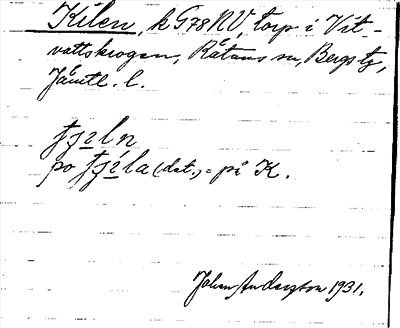 Kilen, k G78 NV, torp i Vit-
vattskrogen, Rätans sn, Bergs tg,
Jämtl. l.
fjıln
po fjíla (dat.) = på K.
Johan Anderzson 1931.